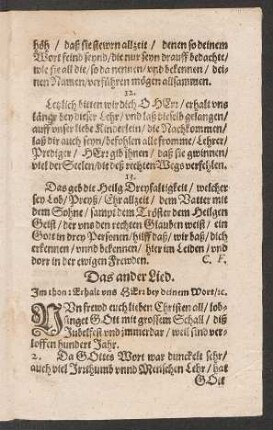 höh / daß sie stewrn allzeit / denen so deinem
Wort feind seynd / die nur seyn drauff bedachte /
wie sie all die / so da nennen / vnd bekennen / dei-
nen Namen / verführen mögen allsammen.
12.
Letzlich bitten wir dich O HErr / erhalt vns
längs bey dieser Lehr / vnd laß dieselb gelangen /
auff vnser liebe Kinderlein / die Nachkommen /
laß dir auch seyn / befohlen alle fromme / Lehrer /
Prediger / HErr gib ihnen / daß sie gewinnen /
viel der Seelen / die deß rechten Wegs verfehlen.
13.
Das geb die Heilg Dreyfaltigkeit / welcher
sey Lob / Preyß / Ehr allzeit / dem Vatter mit
dem Sohne / sampt dem Tröster dem Heilgen
Geist / der vns den rechten Glauben weist / ein
Gott in drey Personen / hilff daß / wir baß / dich
erkennen / vnnd bekennen / hier im Leiden / vnd
dort in der ewigen Frewden. C. F.
Das ander Lied.
Im thon: Erhalt vns HErr bey deinem Wort / ꝛc.
NVn frewd euch lieben Christen all / lob-
singet GOtt mit grossem Schall / diß
Jubelfest vnd immerdar / weil sind ver-
loffen hundert Jahr.
2. Da GOttes Wort war dunckelt sehr /
auch viel Irrthumb vnnd Menschen Lehr / hat
GOtt